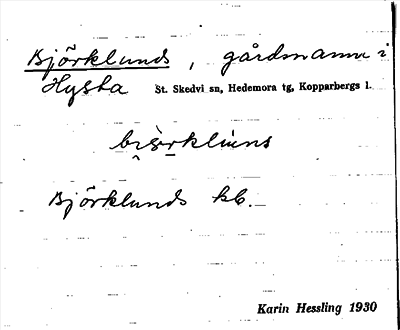 Björklunds, gårdnamn i
Hysta St. Skedvi sn, Hedemora tg, Kopparbergs l.
Björklunds kb.
Karin Hessling 1930